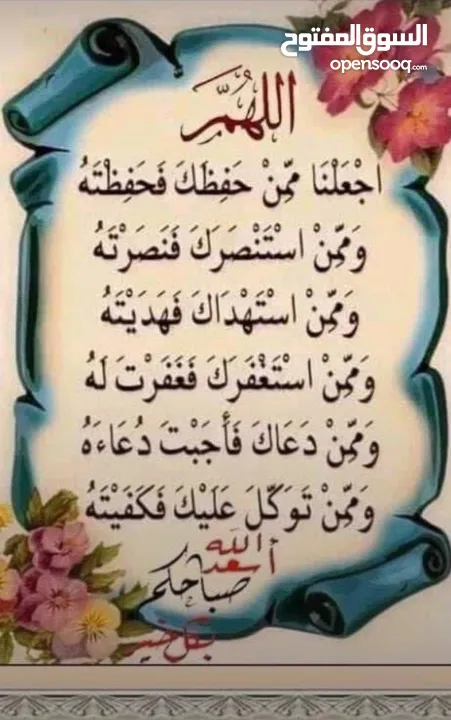 السوق المفتوح
opensooq.com
اللهُمَّ
اجْعَلْنَا مِمَّنْ حَفِظَكَ فَحَفِظْتَهُ
وَمِمَّنْ اسْتَنْصَرَكَ فَنَصَرْتَهُ
وَمِمَّنْ اسْتَهْدَاكَ فَهَدَيْتَهُ
وَمِمَّنْ اسْتَغْفَرَكَ فَغَفَرْتَ لَهُ
وَمِمَّنْ دَعَاكَ فَأَجَبْتَ دُعَاءَهُ
وَمِمَّنْ تَوَكَّلَ عَلَيْكَ فَكَفَيْتَهُ
أسعد الله
صباحكم
بكل خير